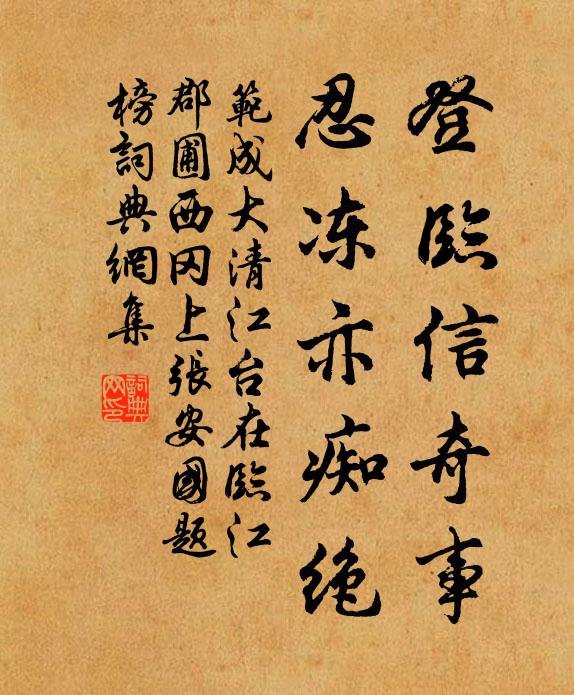 登臨信奇事
忍冻亦痴绝
範成大清江台在臨江
郡圃西冈上張安國题
榜詞典網集
詞典
网印